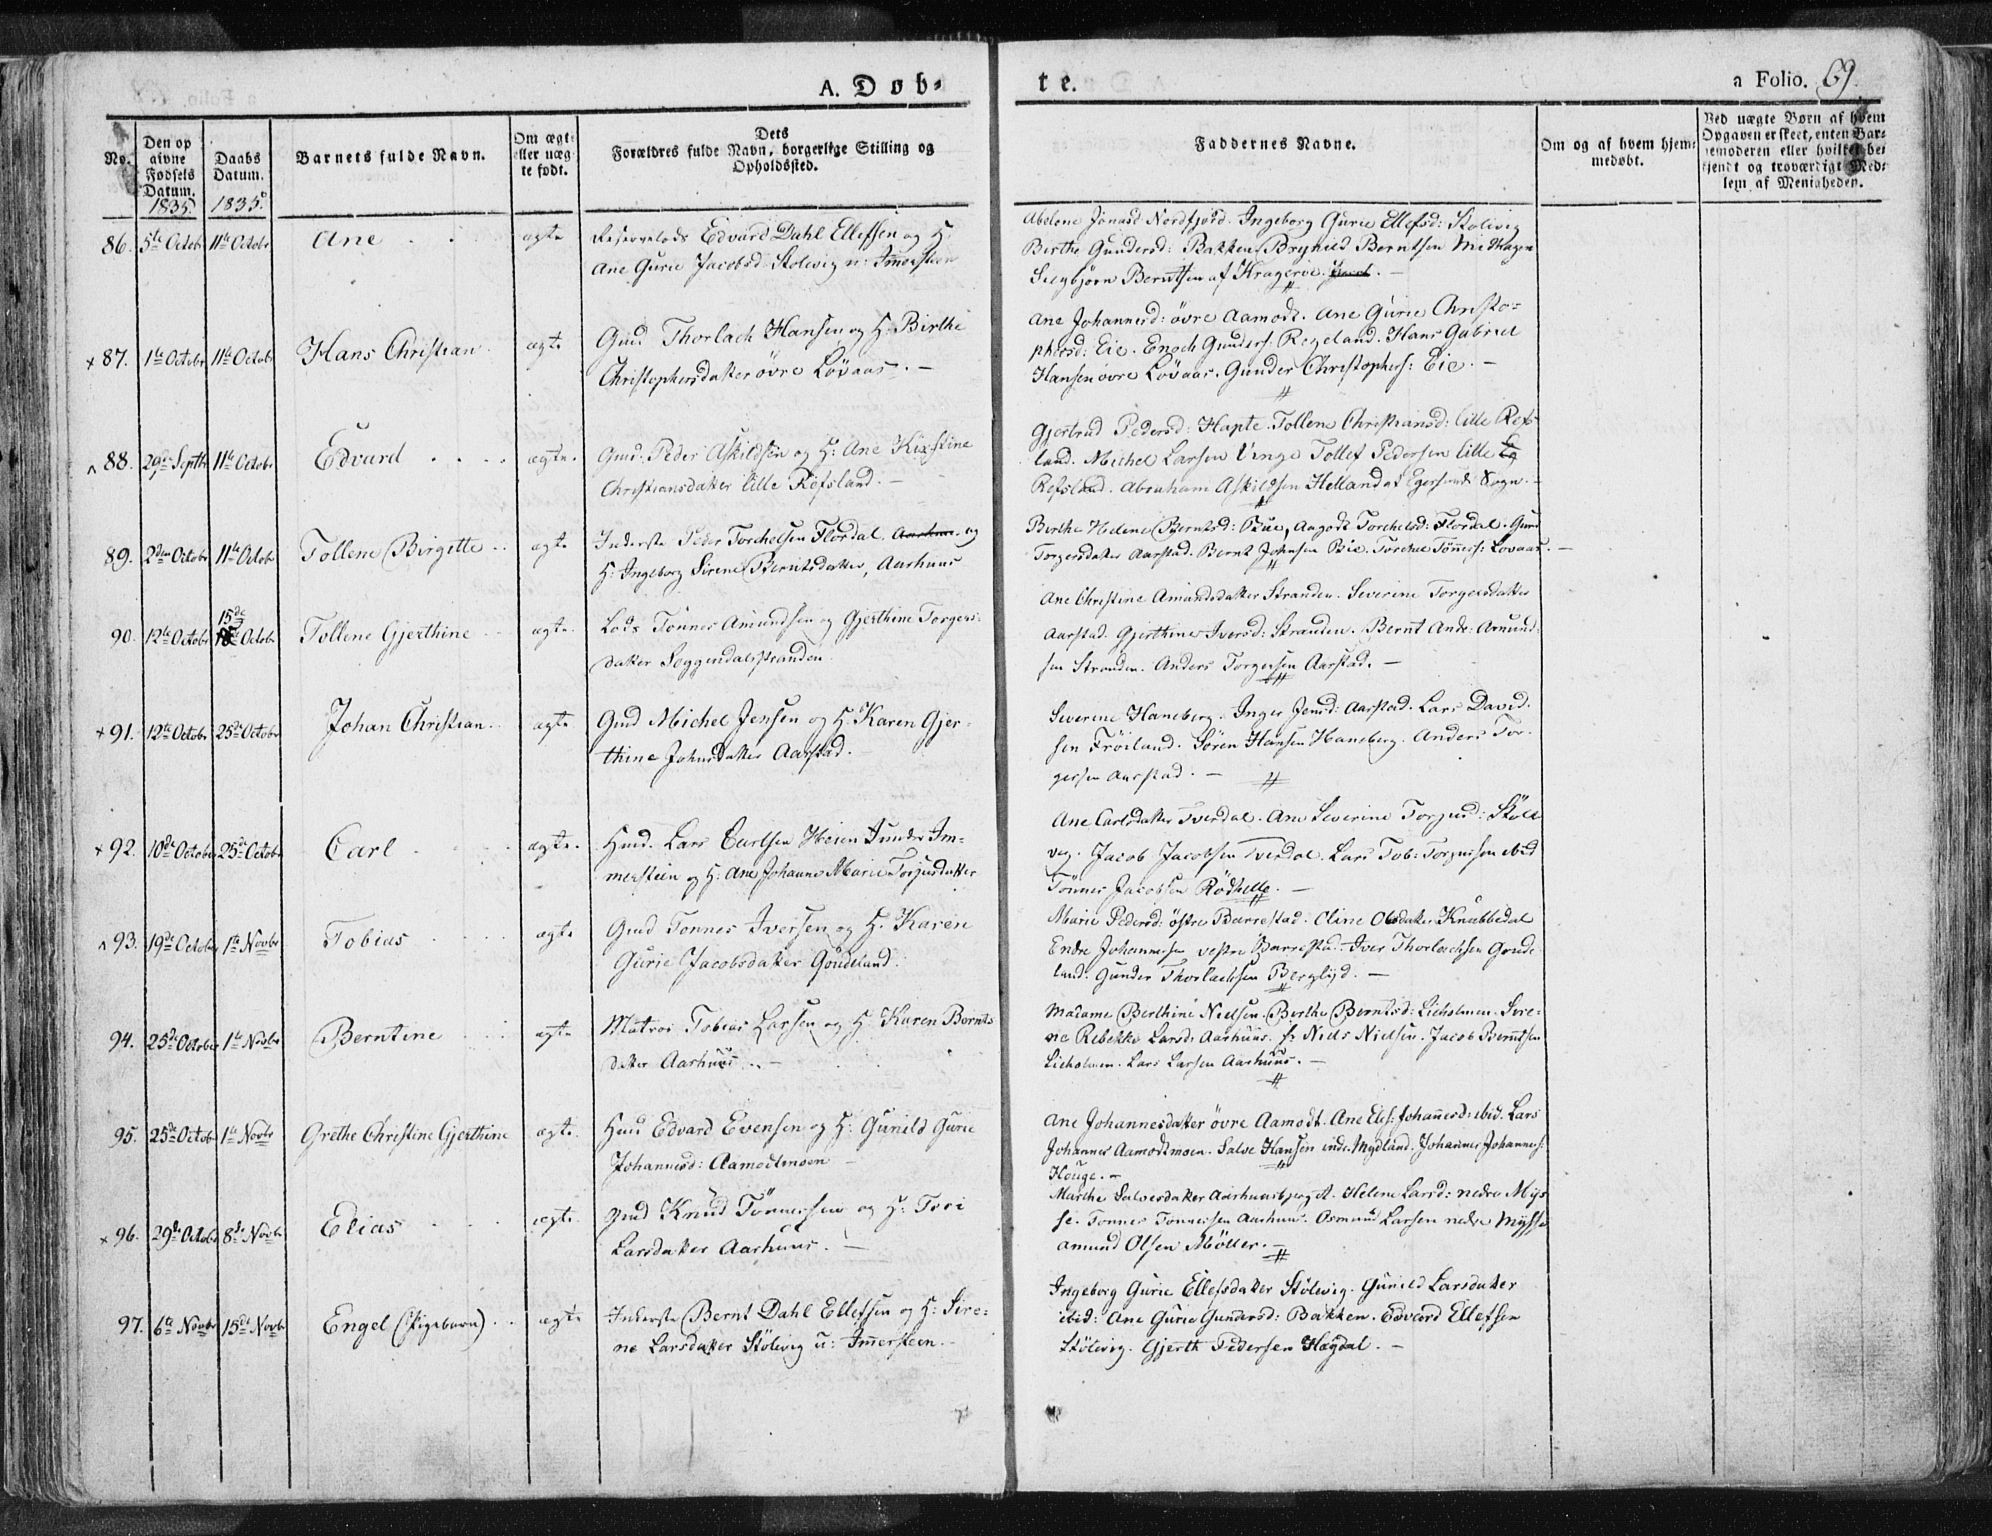 A. Døb-
te.
a Folio. 69.
No.
Den op
givne
Fødsels
Datum.
1835.
Daabs
Datum.
1835.
Barnets fulde Navn.
Om ægte
eller uæg
te født.
Dets
Forældres fulde Navn, borgerlige Stilling og
Opholdssted.
Faddernes Navne.
Om og af hvem hjem-
medøbt.
Ved uægte Børn af hvem
Opgaven er skeet, enten Bar-
nemoderen eller hvilket be-
kjendt og troværdigt Med-
lem af Menigheden.
86. 5te Octobr 11te Octobr Ane ægte Reservelods Edvard Dahl Ellefsen og H.
Ane Gurie Jacobsd. Stølevig u: Immersteen
Abelone Jonasd Nordfjord. Ingeborg Gurie Ellefsd: Stølevig
Berthe Gundersd: Bakken. Brynild Berntsen
Siegbjørn Berntsen af Kragerøe. -
+ 87. 1te Octobr 11te Octobr Hans Christian ægte Gmd Thorlach Hansen og H. Birthe
Christophersdatter øvre Løvaas. -
Ane Johannesd: øvre Aamodt. Ane Gurie Christo-
phersd: Eie. Enoch Gunders. Regeland. Hans Gabriel
Hansen øvre Løvaas. Gunder Christophers: Eie. -
88. 29de Septbr 11te Octobr Edvard ægte. Gmd. Peder Askildsen og H: Ane Kirstine
Christiansdatter lille Refsland. -
Gjertrud Pedersd: Hapte. Tollene Christiansd: lille Refs-
land. Michel Larsen Vinge Tollef Pedersen lille
Refsland. Abraham Askildsen Helland af Egersunds Sogn. -
89. 2den Octobr 11te Octobr Tollene Birgitte ægte Inderste Peder Torchelsen Flordal og
H: Ingeborg Sirene Berntsdatter, Aarhuus
Berthe Helene Berntsd: Bue, Aagodt Torchelsd: Flordal. Guri
Torgersdatter Aarstad. Bernt Johnsen Bie. Torchel Tønnes: Lovaas. -
90. 12te Octobr 15de Octobr Tollene Gjerthine ægte. Lods Tønnes Amundsen og Gjerthine Torgers-
datter Soggendalsstranden.
Ane Christine Amundsdatter Stranden. Severine Torgersdatter
Aarstad. Gjerthine Iversd: Stranden. Bernt Andr: Amund-
sen Stranden. Anders Torgersen Aarstad. -
+ 91. 12te Octobr 25de Octobr Johan Christian ægte Gmd Michel Jensen og H. Karen Gjer-
thine Johnsdatter Aarstad.
Severine Haneberg. Inger Jensd: Aarstad. Lars David-
sen Frøiland. Søren Hansen Haneberg. Anders Tor-
gersen Aarstad. -
+ 92. 10de October 25de Octobr Carl ægte. Huud. Lars Carlsen Heien Under Im-
mersteen og H: Ane Johanne Marie Torjusdatter
Ane Carlsdatter Tverdal. Ane Severine Torjusd: Støle
veg. Jacob Jacobsen Tverdal. Lars Tob: Torjussen ibid
Tønnes Jacobsen Rødhelle. -
93. 19de Octobr 1te Novbr Tobias ægte Gmd Tonnes Iversen og H. Karen
Gurie Jacobsdatter Goudeland.
Marie Pedersd: østre Barrestad. Oline Olsdatter Knubbedal
Endre Johannesen vestre Barrestad. Iver Thorlachsen Goude-
land. Gunder Thorlachsen Berglyd. -
94. 25de October 1te Novbr Berntine ægte Matros Tobias Larsen og H. Karen Bernts
datter Aarhuus. -
Madame Berthine Nielsen. Berthe Berntsd: Lieholmen. Sere-
ne Rebekke Larsd: Aarhuus. hr Niels Nielsen. Jacob Berntsen
Lieholmen. Lars Larsen Aarhuus. -
95. 25de Octobr 1te Novbr Grethe Christine Gjerthine ægte. Huus Edvard Evensen og H: Gunild Gurie
Johannesd: Aamodtmoen -
Ane Johannesdatter øvre Aamodt. Ane Elis: Johannesd: ibid. Lars
Johannes Aamodtmoen. Salve Hansen indr Mydland. Johannes Johannes:
Houge. -
+ 96. 29de Octobr 8de Novbr Elias ægte. Gmd Knud Tønnessen og H: Tori
Larsdatter Aarhuus. -
Marthe Salvesdatter Aarhuusbjerget. Helene Larsd: nedre Mys-
se. Tonnes Tonnessen Aarhuus. Osmund Larsen nedre Mysse
Amund Olsen Møller. -
97. 6te Novbr 15de Novbr Engel (Pigebarn) ægte Inderste Bernt Dahl Ellefsen og H: Sire-
ne Larsdatter Stølevig u: Immersteen. -
Ingeborg Gurie Ellefsdatter Stølevig. Gunild Larsdatter
ibid: Ane Gurie Gundersd: Bakken. Edvard Ellefsen
Stølevig. Gjerth Pedersen Hægdal. -